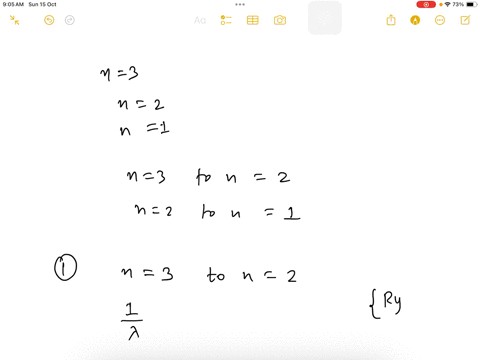 9:05 AM Sun 15 Oct
73%
Aa
n=3
n = 2
n = 1
n=3 to n = 2
n=2 to n = 1
① n = 3 to n = 2
1/λ { Ry